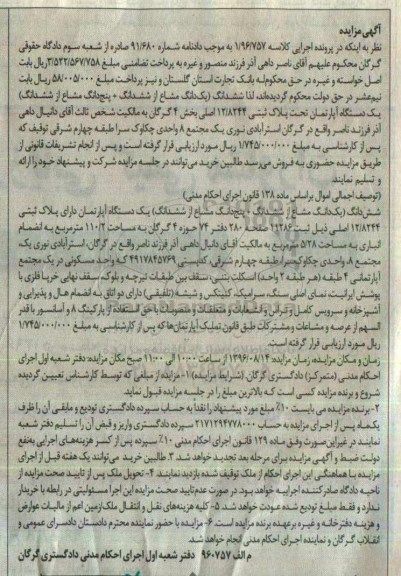 آگهی مزایده
نظر به اینکه در پرونده اجرایی کلاسه ۱/۹۶/۷۵۷ به موجب دادنامه شماره ۹۱/۶۸۰ صادره از شعبه سوم دادگاه حقوقی
گرگان محکوم علیهم آقای ناصر داهی آذر فرزند منصور و غیره به پرداخت تضامنی مبلغ ۳/۵۲۲/۵۶۷/۷۵۸ ریال بابت
اصل خواسته و غیره در حق محکوم‌له بانک تجارت استان گلستان و نیز پرداخت مبلغ ۵۸/۰۰۵/۰۰۰ ریال بابت
نیم‌عشر در حق دولت محکوم گردیده‌اند، لذا ششدانگ (یک‌دانگ مشاع از ششدانگ + پنج‌دانگ مشاع از ششدانگ)
یک دستگاه آپارتمان تحت پلاک ثبتی ۱۲/۸۲۴۴ اصلی بخش ۴ گرگان به مالکیت شخص ثالث آقای دانیال داهی
آذر فرزند ناصر واقع در گرگان استرآبادی نوری یک مجتمع ۸ واحدی چکاوک سرا طبقه چهارم شرقی توقیف که
پس از کارشناسی به مبلغ ۱/۷۴۵/۰۰۰/۰۰۰ ریال مورد ارزیابی قرار گرفته است و پس از انجام تشریفات قانونی از
طریق مزایده حضوری به فروش می‌رسد طالبین خرید می‌توانند در جلسه مزایده شرکت و پیشنهاد خود را ارائه
و تسلیم نمایند.
(توصیف اجمالی اموال براساس ماده ۱۳۸ قانون اجرای احکام مدنی)
شش‌دانگ (یک‌دانگ مشاع از ششدانگ + پنج‌دانگ مشاع از ششدانگ) یک دستگاه آپارتمان دارای پلاک ثبتی
۱۲/۸۲۴۴ اصلی ذیل ثبت ۱۱۲۸۶ صفحه ۲۸۰ دفتر ۷۴ حوزه ۴ گرگان به مساحت ۱۱۰/۲ مترمربع به انضمام
انباری به مساحت ۵۲۸ مترمربع به مالکیت آقای دانیال داهی آذر فرزند ناصر واقع در گرگان، استرآبادی نوری یک
مجتمع ۸ واحدی چکاوک‌سرا، طبقه چهارم شرقی، کدپستی ۴۹۱۷۸۴۵۷۶۹ که واحد مسکونی در یک مجتمع
آپارتمانی ۴ طبقه (هر طبقه ۲ واحد) اسکلت بتنی، سقف بین طبقات تیرچه و بلوک، سقف نهایی خرپا فلزی با
پوشش ایرانیت، نمای اصلی سنگ، سرامیک، کنیتکس و شیشه (تلفیقی) دارای دو اتاق به انضمام هال و پذیرایی و
آشپزخانه و سرویس کامل و تراس و انشعابات و متعلقات و منضمات با حق استفاده از پارکینگ ۸ و آسانسور با قدر
السهم از عرصه و مشاعات و مشترکات طبق قانون تملیک آپارتمان‌ها که پس از کارشناسی به مبلغ ۱/۷۴۵/۰۰۰/۰۰۰
ریال مورد ارزیابی قرار گرفته است.
زمان و مکان مزایده: زمان مزایده: ۱۳۹۶/۰۸/۱۴ از ساعت ۱۰:۰۰ الی ۱۱:۰۰ صبح مکان مزایده: دفتر شعبه اول اجرای
احکام مدنی (متمرکز) دادگستری گرگان. (شرایط مزایده) ۱- مزایده از مبلغی که توسط کارشناس تعیین گردیده
شروع و برنده مزایده کسی است که بالاترین مبلغ را در جلسه مزایده قبول نماید.
۲- برنده مزایده می بایست ۱۰٪ مبلغ مورد پیشنهاد را نقدا به حساب سپرده دادگستری تودیع و مابقی آن را ظرف
یک‌ماه پس از اجرای مزایده به حساب ۲۱۷۱۲۹۴۷۷۸۰۰۰ سپرده دادگستری واریز و فیش آن را تسلیم دفتر شعبه
نمایند در غیراین‌صورت وفق ماده ۱۲۹ قانون اجرای احکام مدنی ۱۰٪ سپرده پس از کسر هزینه‌های اجرایی به‌نفع
دولت ضبط و آگهی مزایده برای مرحله بعد تجدید خواهد شد. ۳. طالبین خرید می‌توانند یک هفته قبل از اجرای
مزایده با هماهنگی این اجرای احکام از ملک توقیف شده بازدید نمایند. ۴- تحویل ملک پس از تایید صحت مزایده از
ناحیه دادگاه صادرکننده اجراییه خواهد بود. در صورت عدم‌تایید صحت مزایده این اجرا مسئولیتی در رابطه با خریدار
ندارد و فقط مبلغ تودیع شده عودت خواهد شد. ۵- کلیه هزینه‌های نقل و انتقال ملک/زمین اعم از مالیات عوارض
و هزینه دفترخانه و غیره برعهده برنده مزایده است. ۶- مزایده با حضور نماینده محترم دادستان دادسرای عمومی و
انقلاب گرگان و نماینده اجرای احکام مدنی انجام خواهد شد.
م الف ۹۶۰۷۵۷ دفتر شعبه اول اجرای احکام مدنی دادگستری گرگان